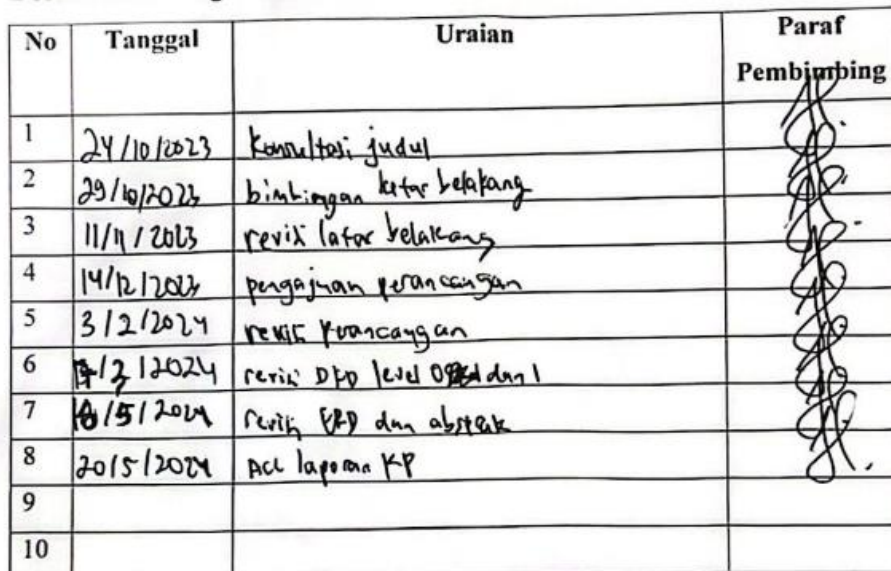 No Tanggal Uraian Paraf Pembimbing
1 24/10/2023 Konsultasi judul
2 29/10/2023 bimbingan latar belakang
3 11/11/2023 revisi latar belakang
4 14/12/2023 pengajuan perancangan
5 3/2/2024 revisi perancangan
6 /3/2024 revisi DFD level 0 dan 1
7 /5/2024 revisi ERD dan abstrak
8 20/5/2024 ACC laporan KP
9
10